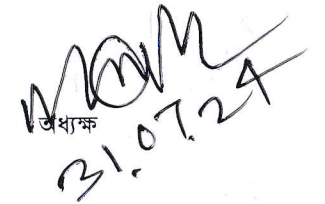 অধ্যক্ষ
31.07.24